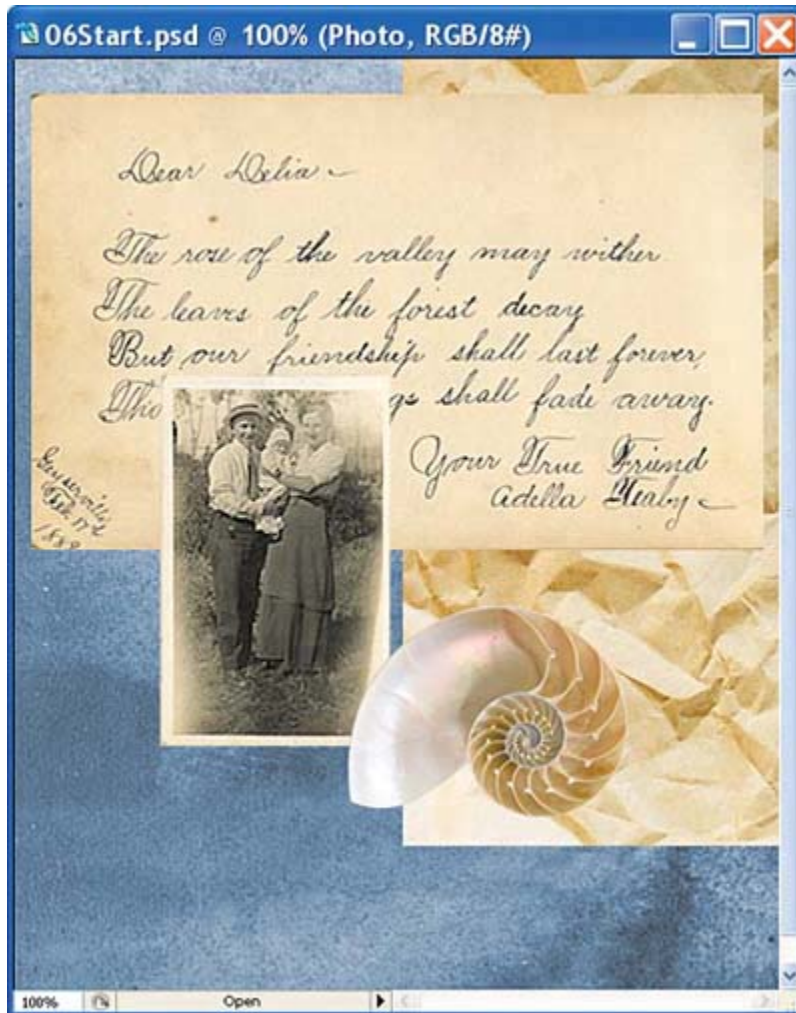 06Start.psd @ 100% (Photo, RGB/8#)
Dear Delia
The rose of the valley may wither
The leaves of the forest decay
But our friendship shall last forever,
Tho gs shall fade away.
Your True Friend
Adella
Geyserville
Feb. 17th
1889
100% Open